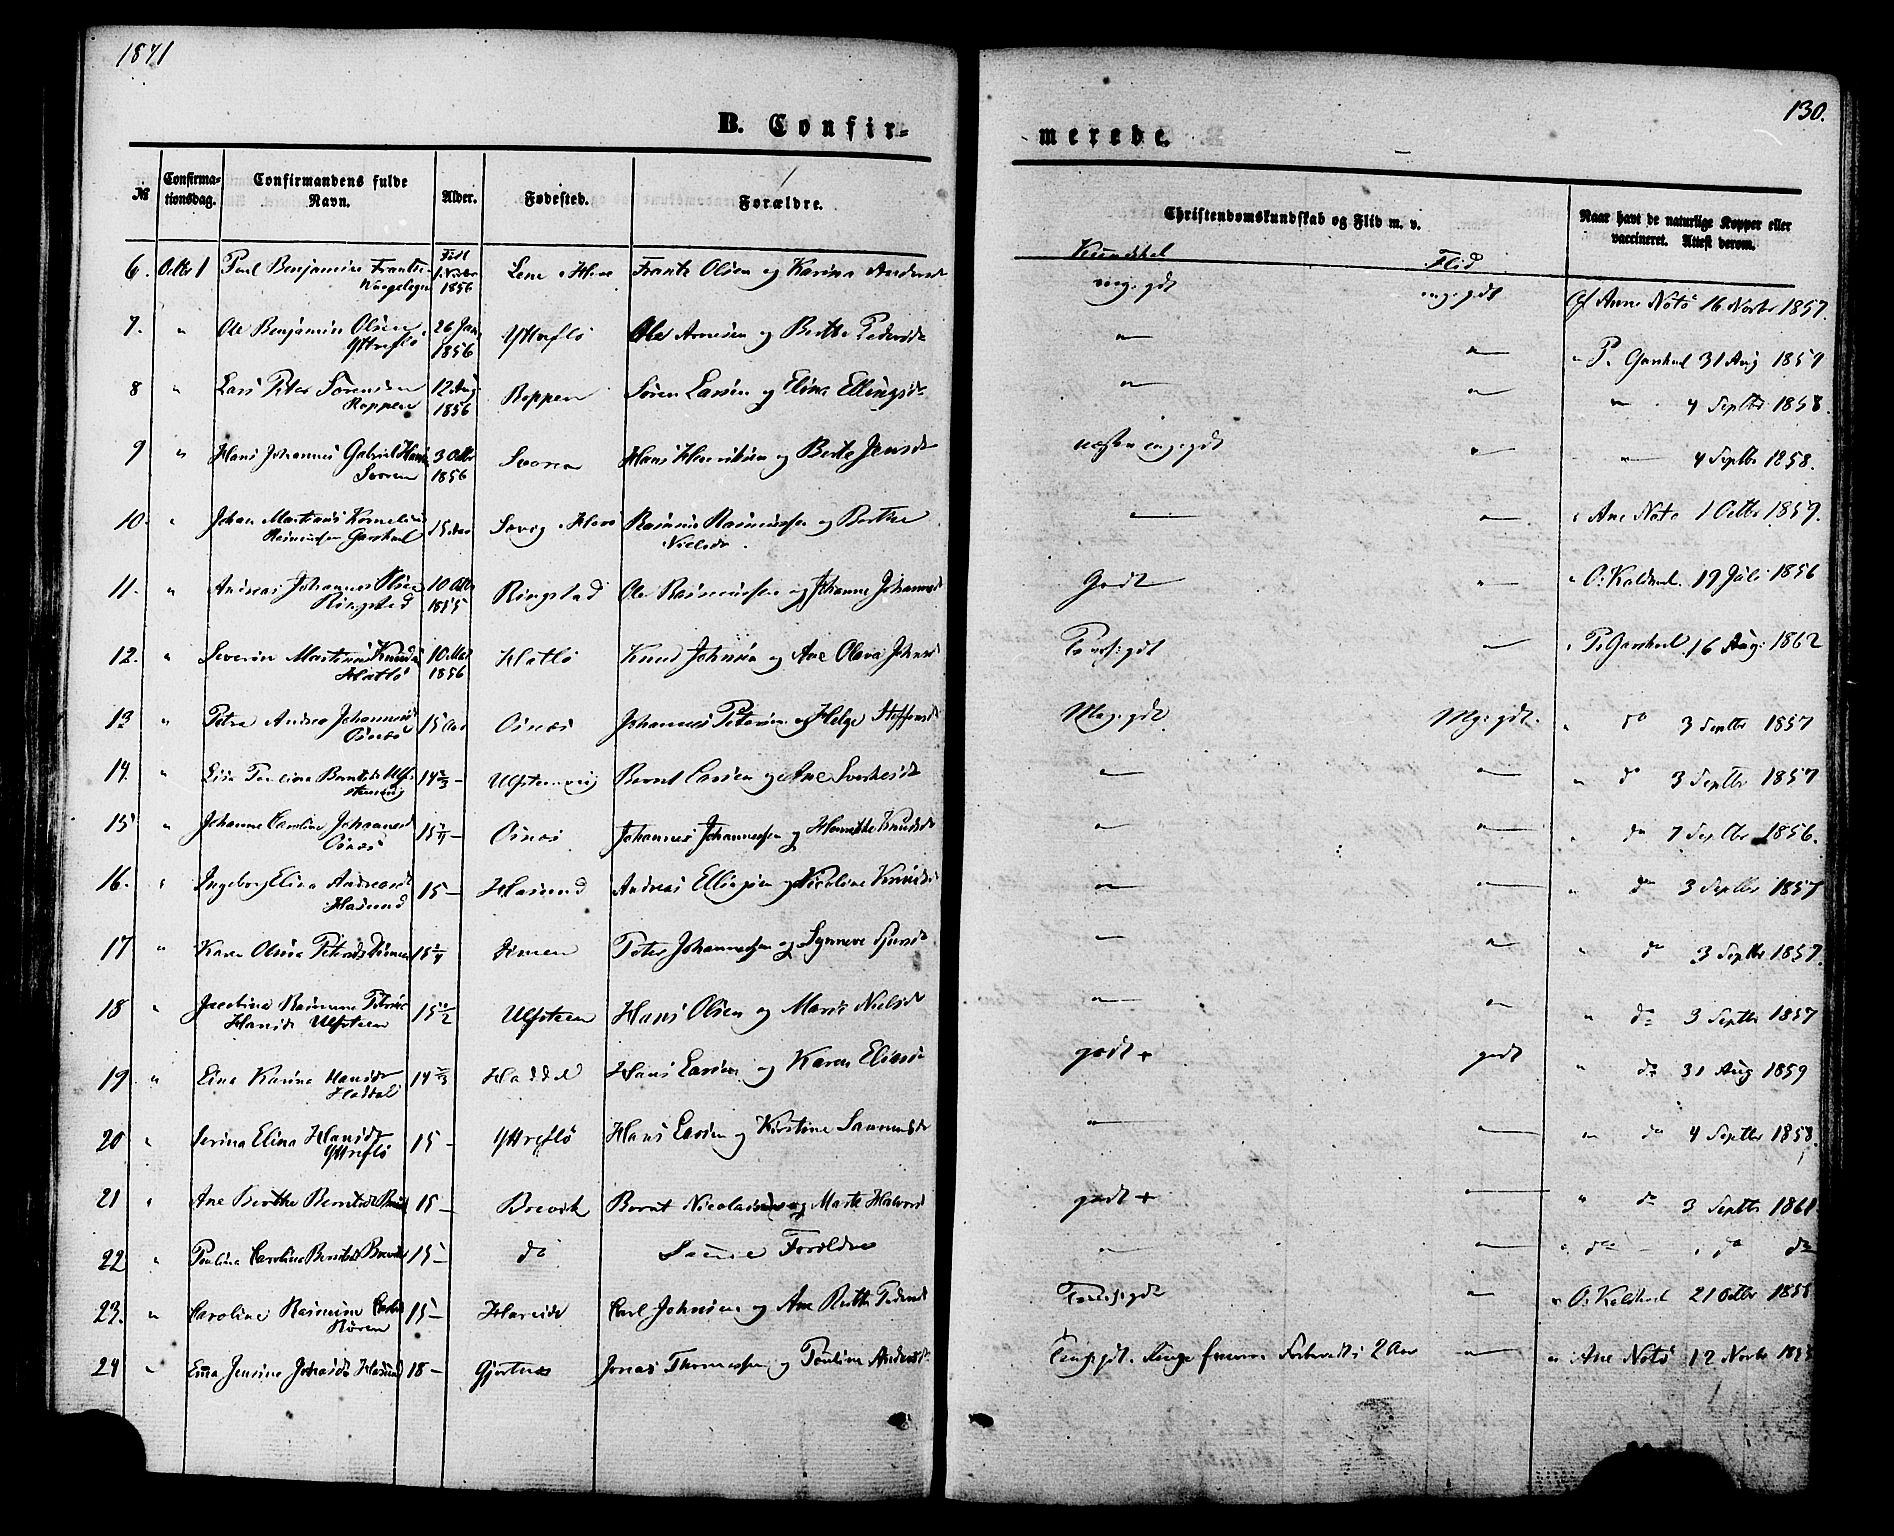 1871
130.
B. Confir-
merede.
№
Confirma-
tionsdag.
Confirmandens fulde
Navn.
Alder.
Fødested.
Forældre.
Christendomskundskab og Flid m. v.
Naar havt de naturlige Kopper eller
vaccineret. Attest derom.
Kundskab
Flid
6. Octbr 1 Paul Benjamine Frantsen
Født
1856
Frants Olsen og Karina Andersd
meg. gdt
meg. gdt
Af Anne Nøtø 16 Novbr 1857.
7. " Ole Benjamin Olsen
Yttrefló
26 Jan
1856
Yttrefló
Ole Arnesen og Berthe Pedersdr
" P. Garshol 31 Aug 1859
8 " Lars Peter Sørensen
Roppen
12 Aug
1856
Roppen
Søren Larsen og Elina Ellingsdr
" 4 Septbr 1858.
9 " Hans Johannes Gabriel Hansen
3 Octbr
1856
Hans Henriksen og Berte Jensdr
næsten meg. gdt
4 Septbr 1858.
10. " Johan Martinus Kornelius
Rasmussen Garshol
15 Aar
Rasmus Rasmussen og Berthe
Nielsdr.
" Ane Nøtø 1 Octbr 1859.
11. " Andreas Johannes Olsen
Ringstad
10 Octbr
1855
Ringstad
Ole Rasmussen og Johanne Johannesd
Godt
" O. Kaldhol. 19 Juli 1856
12. " Severin Martinus Knudsen
Hatlø
10 Mai
1856
Hatlø
Knud Johnsen og Ane Oleva Johnsd
" P. Garshol 16 Aug. 1862
13 " Petra Andrea Johannesd
Osnes
15 Aar
Osnes
Johannes Petersen og Helge Steffensd
Meg. gdt
Meg. gdt.
" do 3 Septbr 1857
14. " Lise Paulina Berntsdr Ulf-
stenvig
14 2/3 —
Ulfstenvig
Bernt Larsen og Ane Sverkesdr
" do 3 Septbr 1857
15 " Johanne Caroline Johannesd
Osnes
15 1/4 —
Osnes
Johannes Johannessen og Henrikke Knudsdr
" do 7 Septbr 1856.
16. " Ingeborg Elina Andreasd
Hasund
15 —
Hasund
Andreas Ellingsen og Nicoline Knudsd
" do 3 Septbr 1857
17 " Karen Olsine Petersdr Dimmen
15 1/4
Dimen
Peter Johannessen og Synneve Sjursdr
" do 3 Septbr 1857.
18 " Jacobine Rasmine Petrine
Hansdr Ulfsteen
15 1/2
Ulfsteen
Hans Olsen og Maria Nielsdr
" do 3 Septbr 1857
19 " Lina Karina Hansdr
Haddal
14 2/3
Haddal
Hans Larsen og Karen Eliasdr
godt +
godt
" do 31 Aug 1859
20 " Serina Elina Hansdr
Yttrefló
15 —
Yttrefló
Hans Larsen og Kirstine Samuelsdr
" do 4 Septbr 1858.
21 " Ane Berthe Berntsdr
15 —
Brevik
Bernt Nicolaisen og Marte Halvorsd
godt +
" do 3 Septbr 1861
22 " Paulina Carolina Berntsdr Brevik
15 —
do
Samme Forældre
" do — " do do
23. " Caroline Rasmine Carlsd
Røren
15 —
Hareide
Carl Johnsen og Ane Berthe Pedersd
" O. Kaldhol 21 Octbr 1855
24 " Emma Jensine Jonasdr Hasund
18 —
Gjertnes
Jonas Thomassen og Pauline Andersd.
2 Aar
" Ane Nøtø 12 Novbr